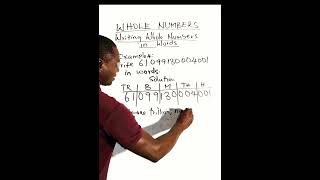 WHOLE NUMBERS
Writing Whole Numbers
in Words
Example:
61099130004001
in words.
Solution
TR B M TH H
61|099|130|004|001